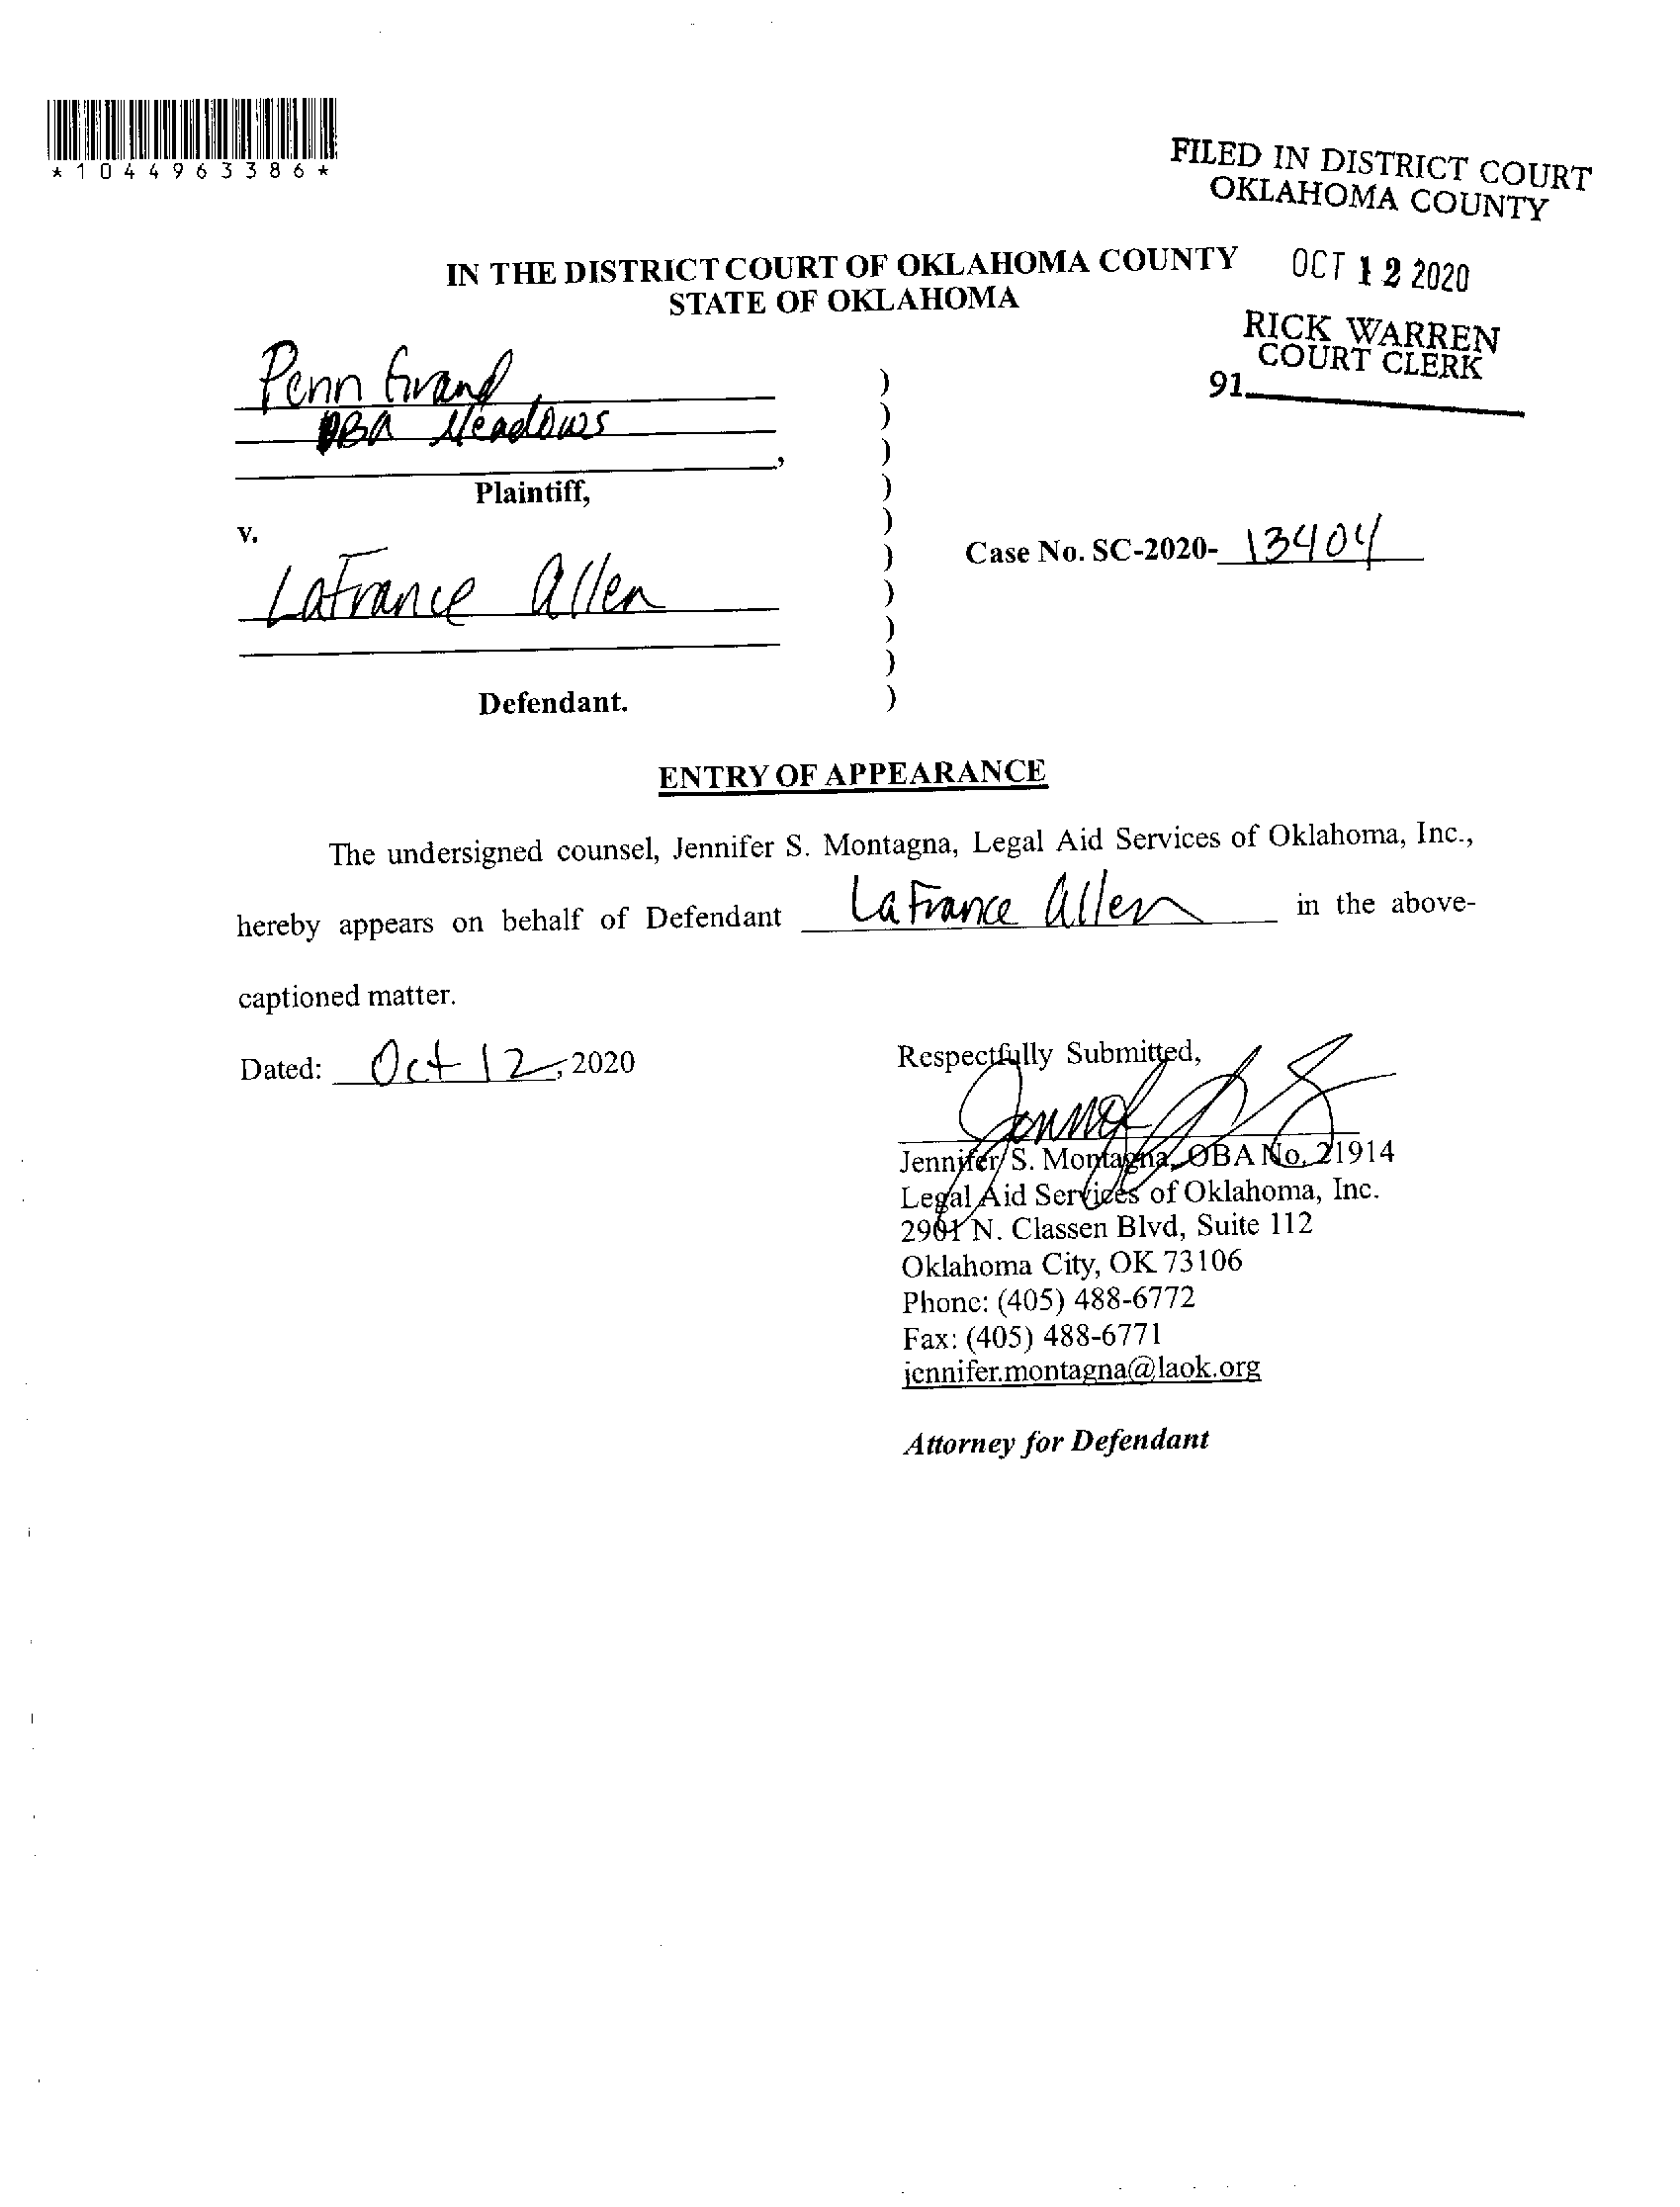 *1044963386*
FILED IN DISTRICT COURT
OKLAHOMA COUNTY
IN THE DISTRICT COURT OF OKLAHOMA COUNTY
STATE OF OKLAHOMA
OCT 12 2020
RICK WARREN
COURT CLERK
91
Penn Grand
DBA Meadows
,
Plaintiff,
v.
Case No. SC-2020- 13404
LaFrance Allen
Defendant.
ENTRY OF APPEARANCE
The undersigned counsel, Jennifer S. Montagna, Legal Aid Services of Oklahoma, Inc.,
hereby appears on behalf of Defendant LaFrance Allen in the above-
captioned matter.
Dated: Oct 12, 2020
Respectfully Submitted,
Jennifer S. Montagna, OBA No. 21914
Legal Aid Services of Oklahoma, Inc.
2901 N. Classen Blvd, Suite 112
Oklahoma City, OK 73106
Phone: (405) 488-6772
Fax: (405) 488-6771
jennifer.montagna@laok.org
Attorney for Defendant